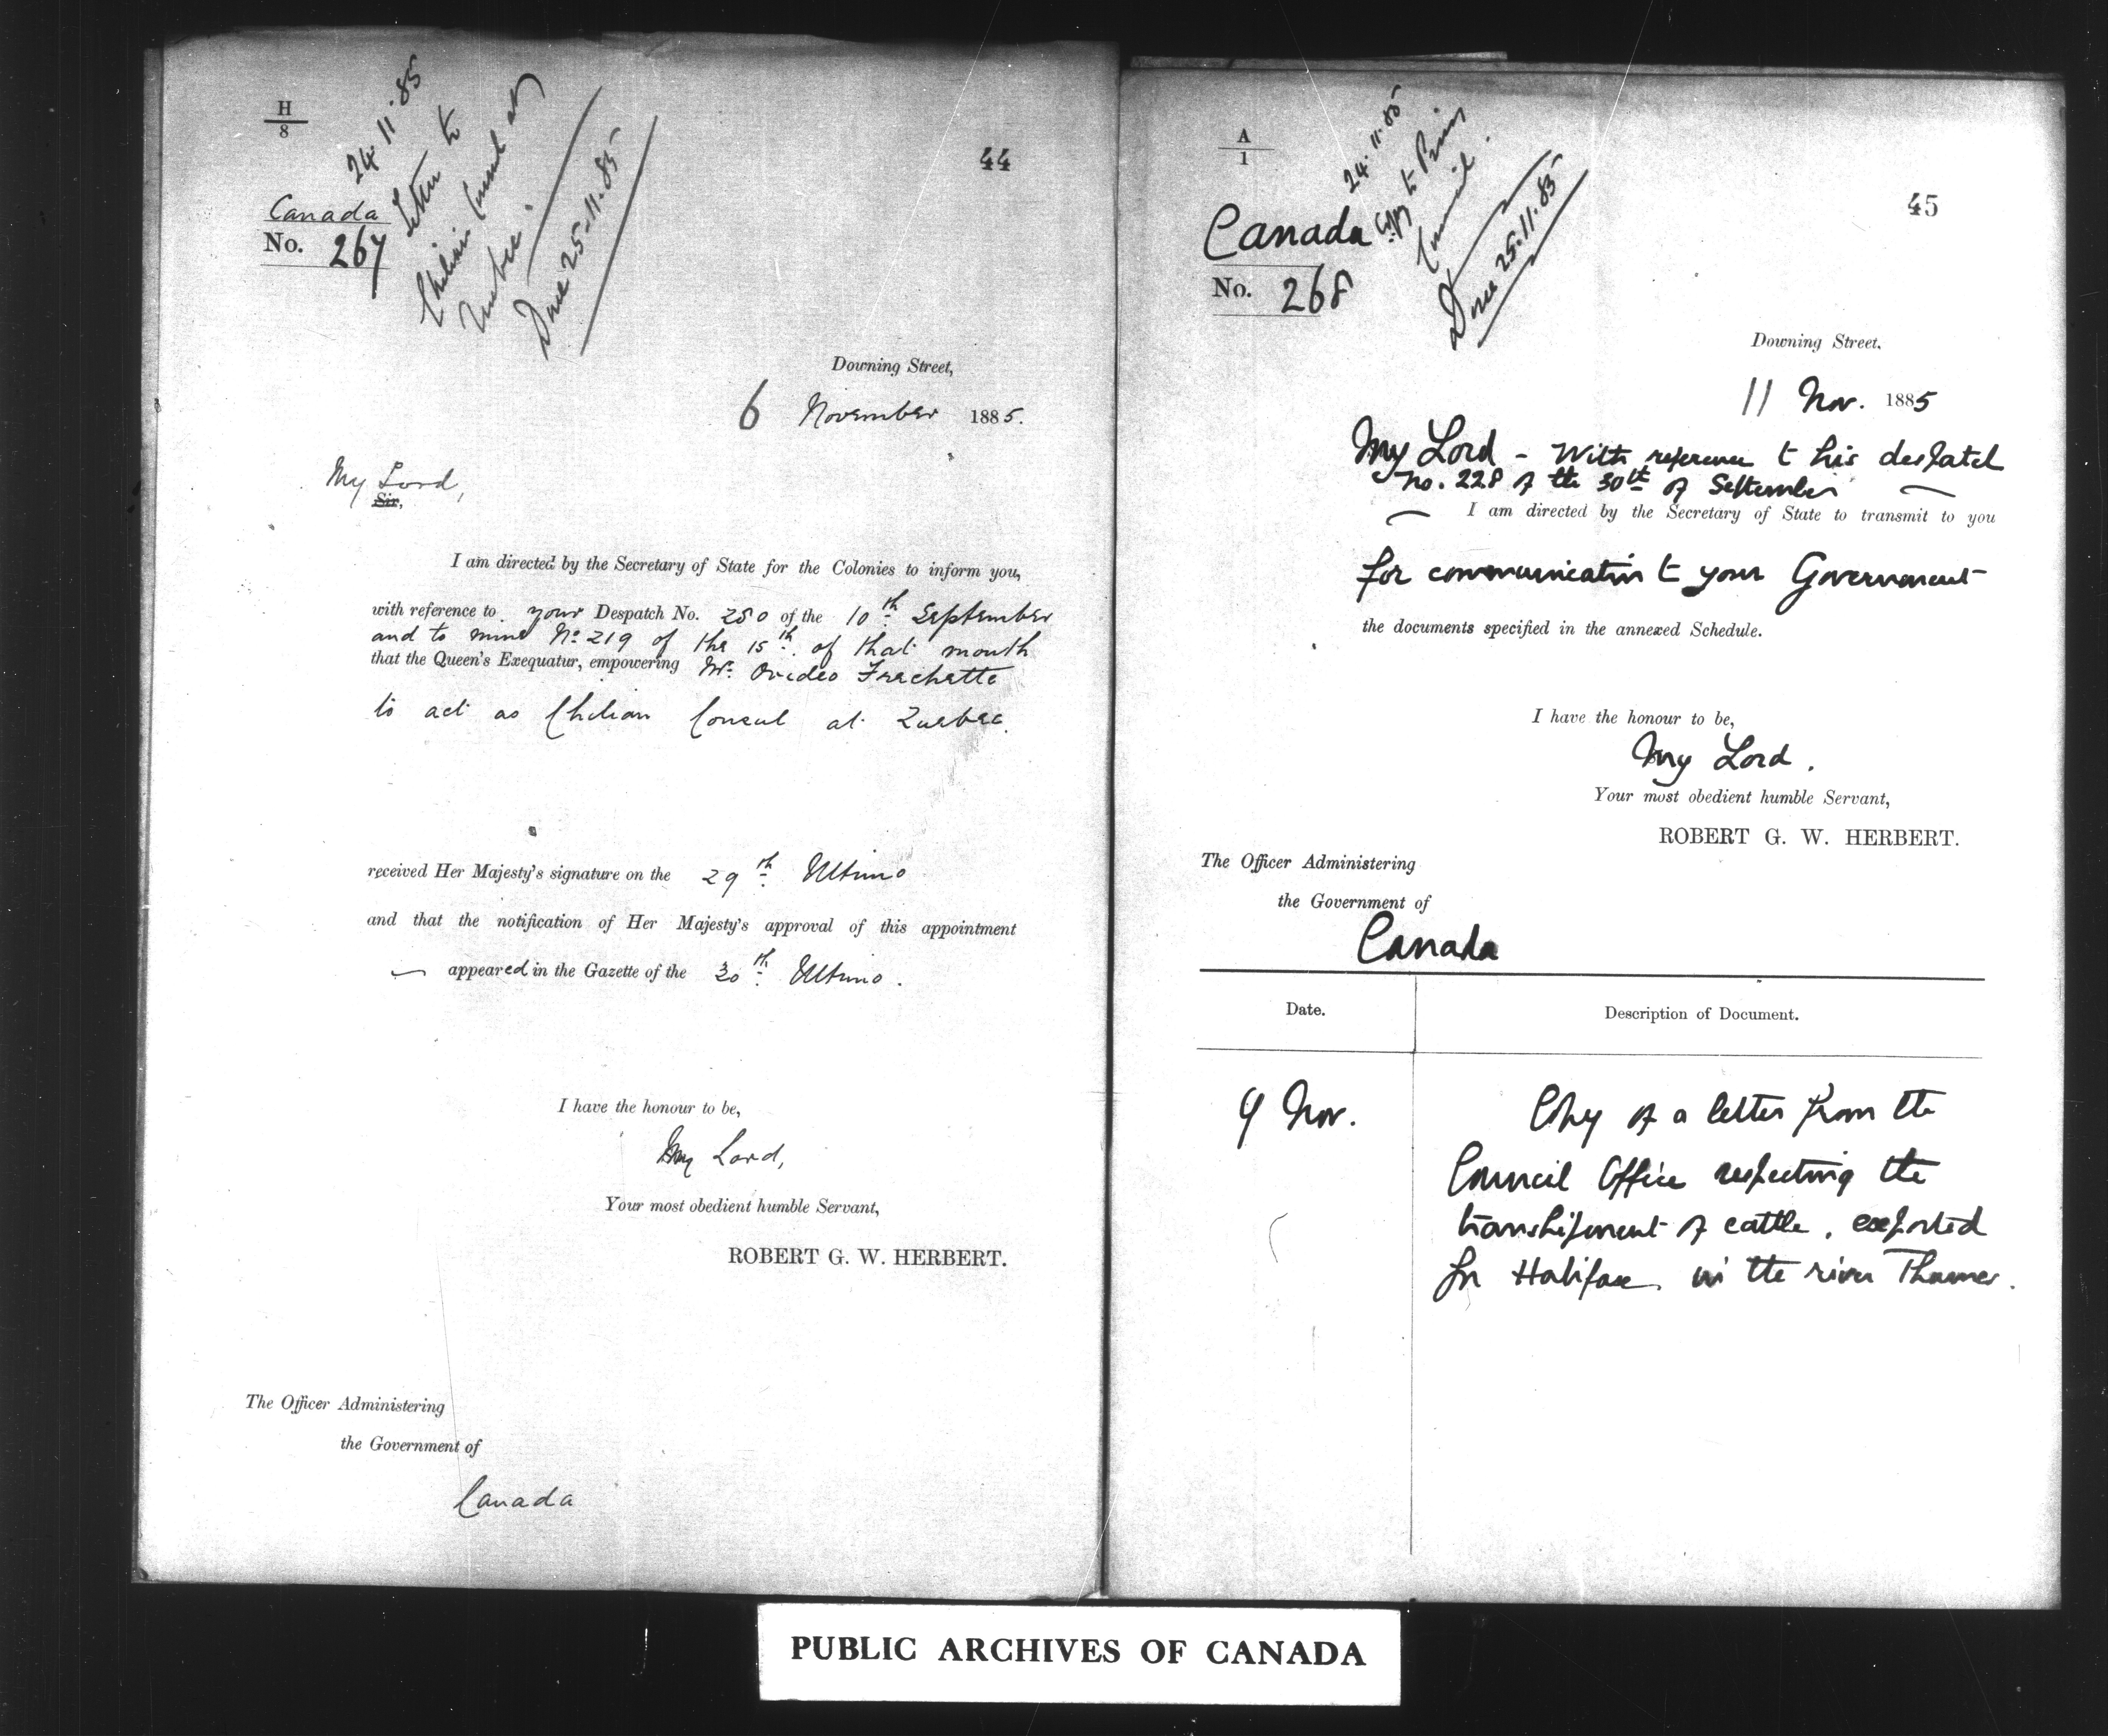 H
8
24.11.85
Letter to
Chilian Consul at
Quebec.
Done 25.11.85
44
Canada
No. 267
Downing Street,
6 November 1885.
My Lord,
Sir,
I am directed by the Secretary of State for the Colonies to inform you,
with reference to your Despatch No. 250 of the 10th September
and to mine No. 219 of the 15th of that month
that the Queen's Exequatur, empowering Mr. Ovideo Frechette
to act as Chilian Consul at Quebec.
received Her Majesty's signature on the 29th Ultimo
and that the notification of Her Majesty's approval of this appointment
appeared in the Gazette of the 30th Ultimo.
I have the honour to be,
My Lord,
Your most obedient humble Servant,
ROBERT G. W. HERBERT.
The Officer Administering
the Government of
Canada
A
1
24.11.85
Copy to Privy
Council.
Done 25.11.85
45
Canada
No. 268
Downing Street.
11 Nov. 1885
My Lord - With reference to his despatch
No. 228 of the 30th of September
I am directed by the Secretary of State to transmit to you
for communication to your Government
the documents specified in the annexed Schedule.
I have the honour to be,
My Lord.
Your most obedient humble Servant,
ROBERT G. W. HERBERT.
The Officer Administering
the Government of
Canada
Date.
Description of Document.
9 Nov.
Copy of a letter from the
Council Office respecting the
transhipment of cattle, exported
for Halifax, in the river Thames.
PUBLIC ARCHIVES OF CANADA